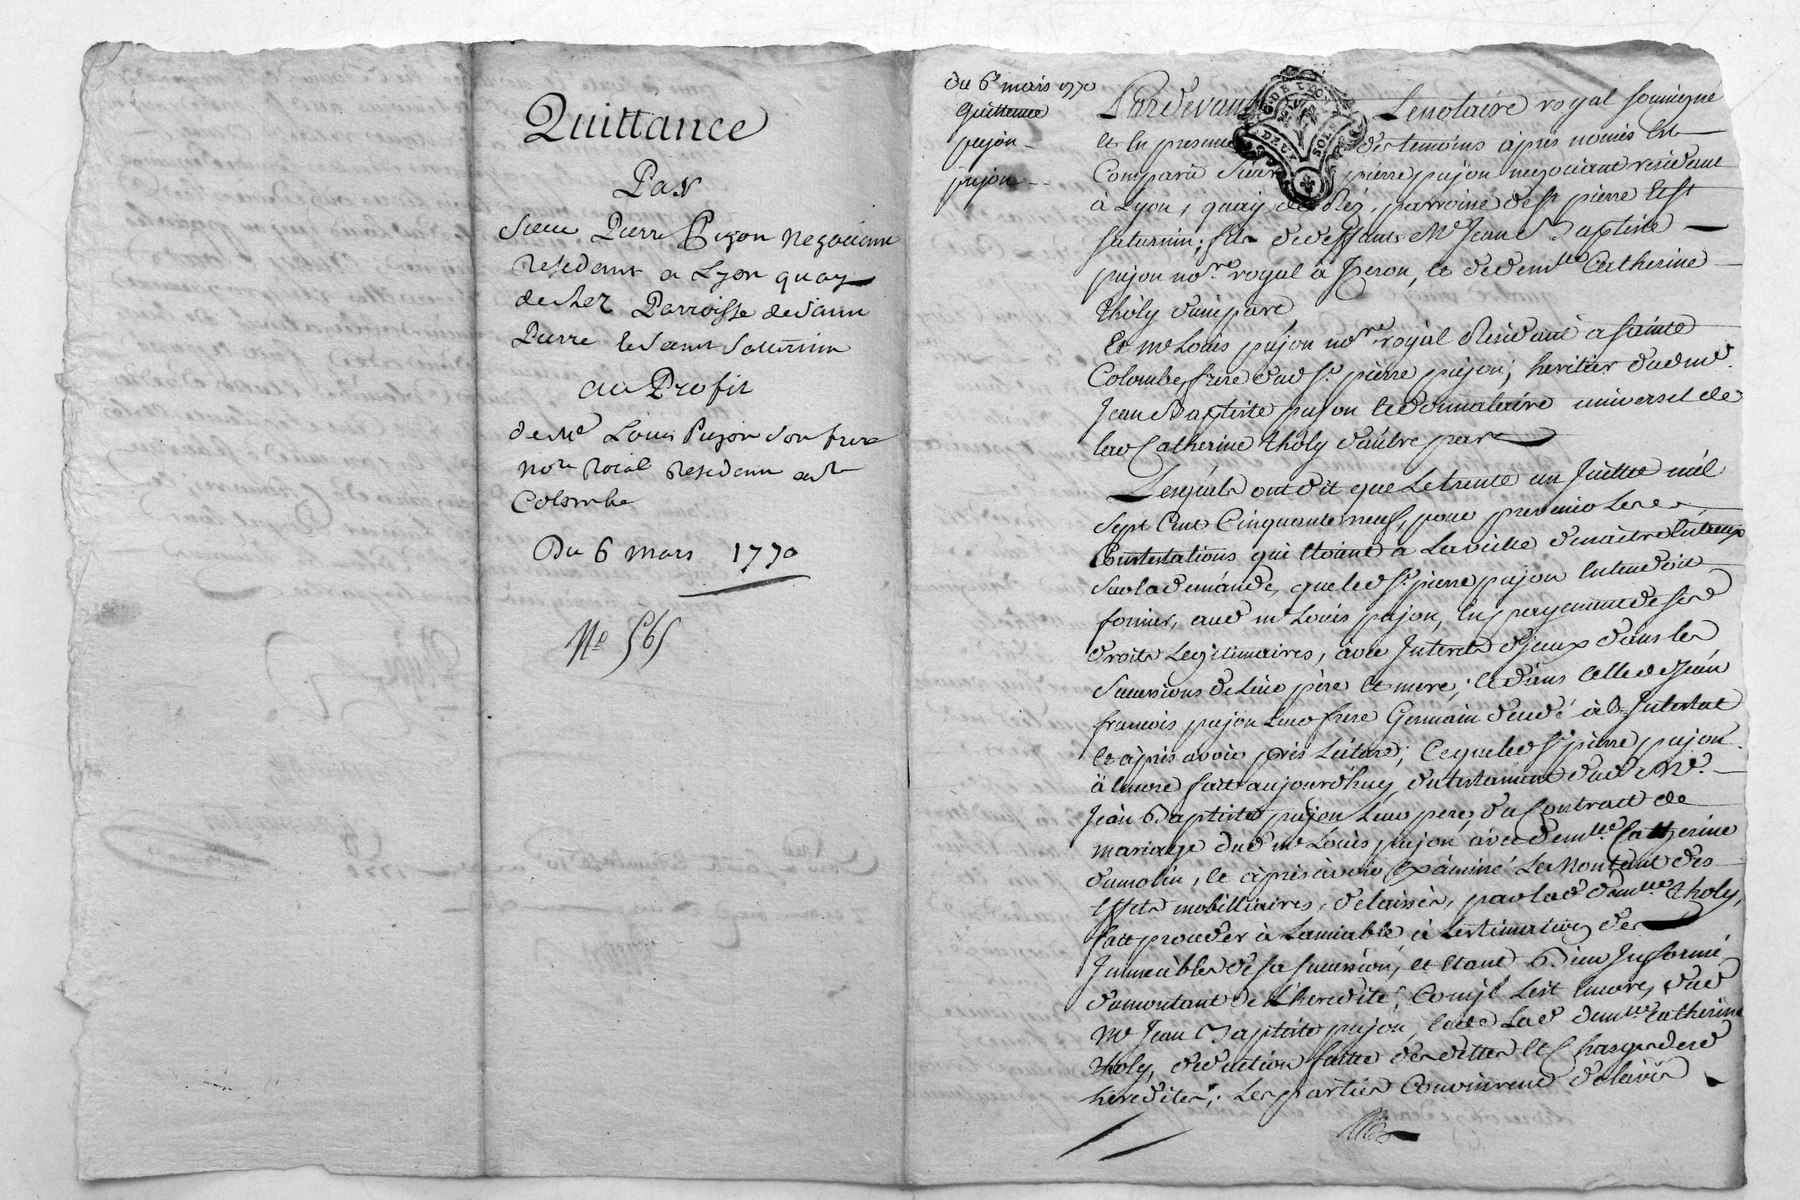 Quittance
Par
Sieur Pierre Pujon negociant
residant a Lyon quay
de Rez Parroisse de Saint
Pierre le Saint Saturnin
au Profit
de Me Louis Pujon son frere
nore roial residant a Ste
Colombe
Du 6 mars 1770
No 565
du 6e mars 1770
Quittance
pujon
pujon
G. DE LYON
DEUX SOLS
Pardevant Le notaire royal soussigne
et en presence des temoins apres només est
Comparu Sieur pierre pujon negociant residant
à Lyon, quay de Réz, parroisse de St pierre et St
saturnin, fils de deffunts Me Jean Baptiste
pujon nore royal à Iseron, et de demlle Catherine
tholy d'une part,
Et me Louis pujon nore royal Residant a sainte
Colombe, frere dud sr pierre pujon, heritier dud me
Jean Baptiste pujon et donnataire universel de
lad Catherine tholy d'autre part
Lesquels ont dit que Le trente un Juillet mil
sept Cent Cinquante neuf, pour prevenir les
Contestations qui étoient à La veille de naitre entreux
Sur la demande, que led sr pierre pujon entendoit
former, aud me Louis pujon, en payement de ses
droits Legitimaires, avec Interets d'jceux dans les
Successions de Leurs père et mere, et dans celle de Jean
francois pujon Leur frere Germain decedé ab Intestat
et après avoir pris Lecture, Ce que led sr pierre pujon
à encore fait aujourd'huy, du testament dud Me
Jean Baptiste pujon Leur pere, du Contract de
mariage dud me Louis pujon avec demlle Catherine
dumolin, et après avoir Examiné Le Montant des
effets mobilliaires, delaissés, par lad demlle tholy,
fait proceder à L'amiable à L'estimation des
Immeubles de sa succession, et etant Bien Informé
du montant de L'heredité, Comme jl L'est encore, dud
Me Jean Baptiste pujon, et de Lad demlle Catherine
tholy, deduction faitte des dettes et Charges desd
heredités; Les parties Convinrent de L'avis